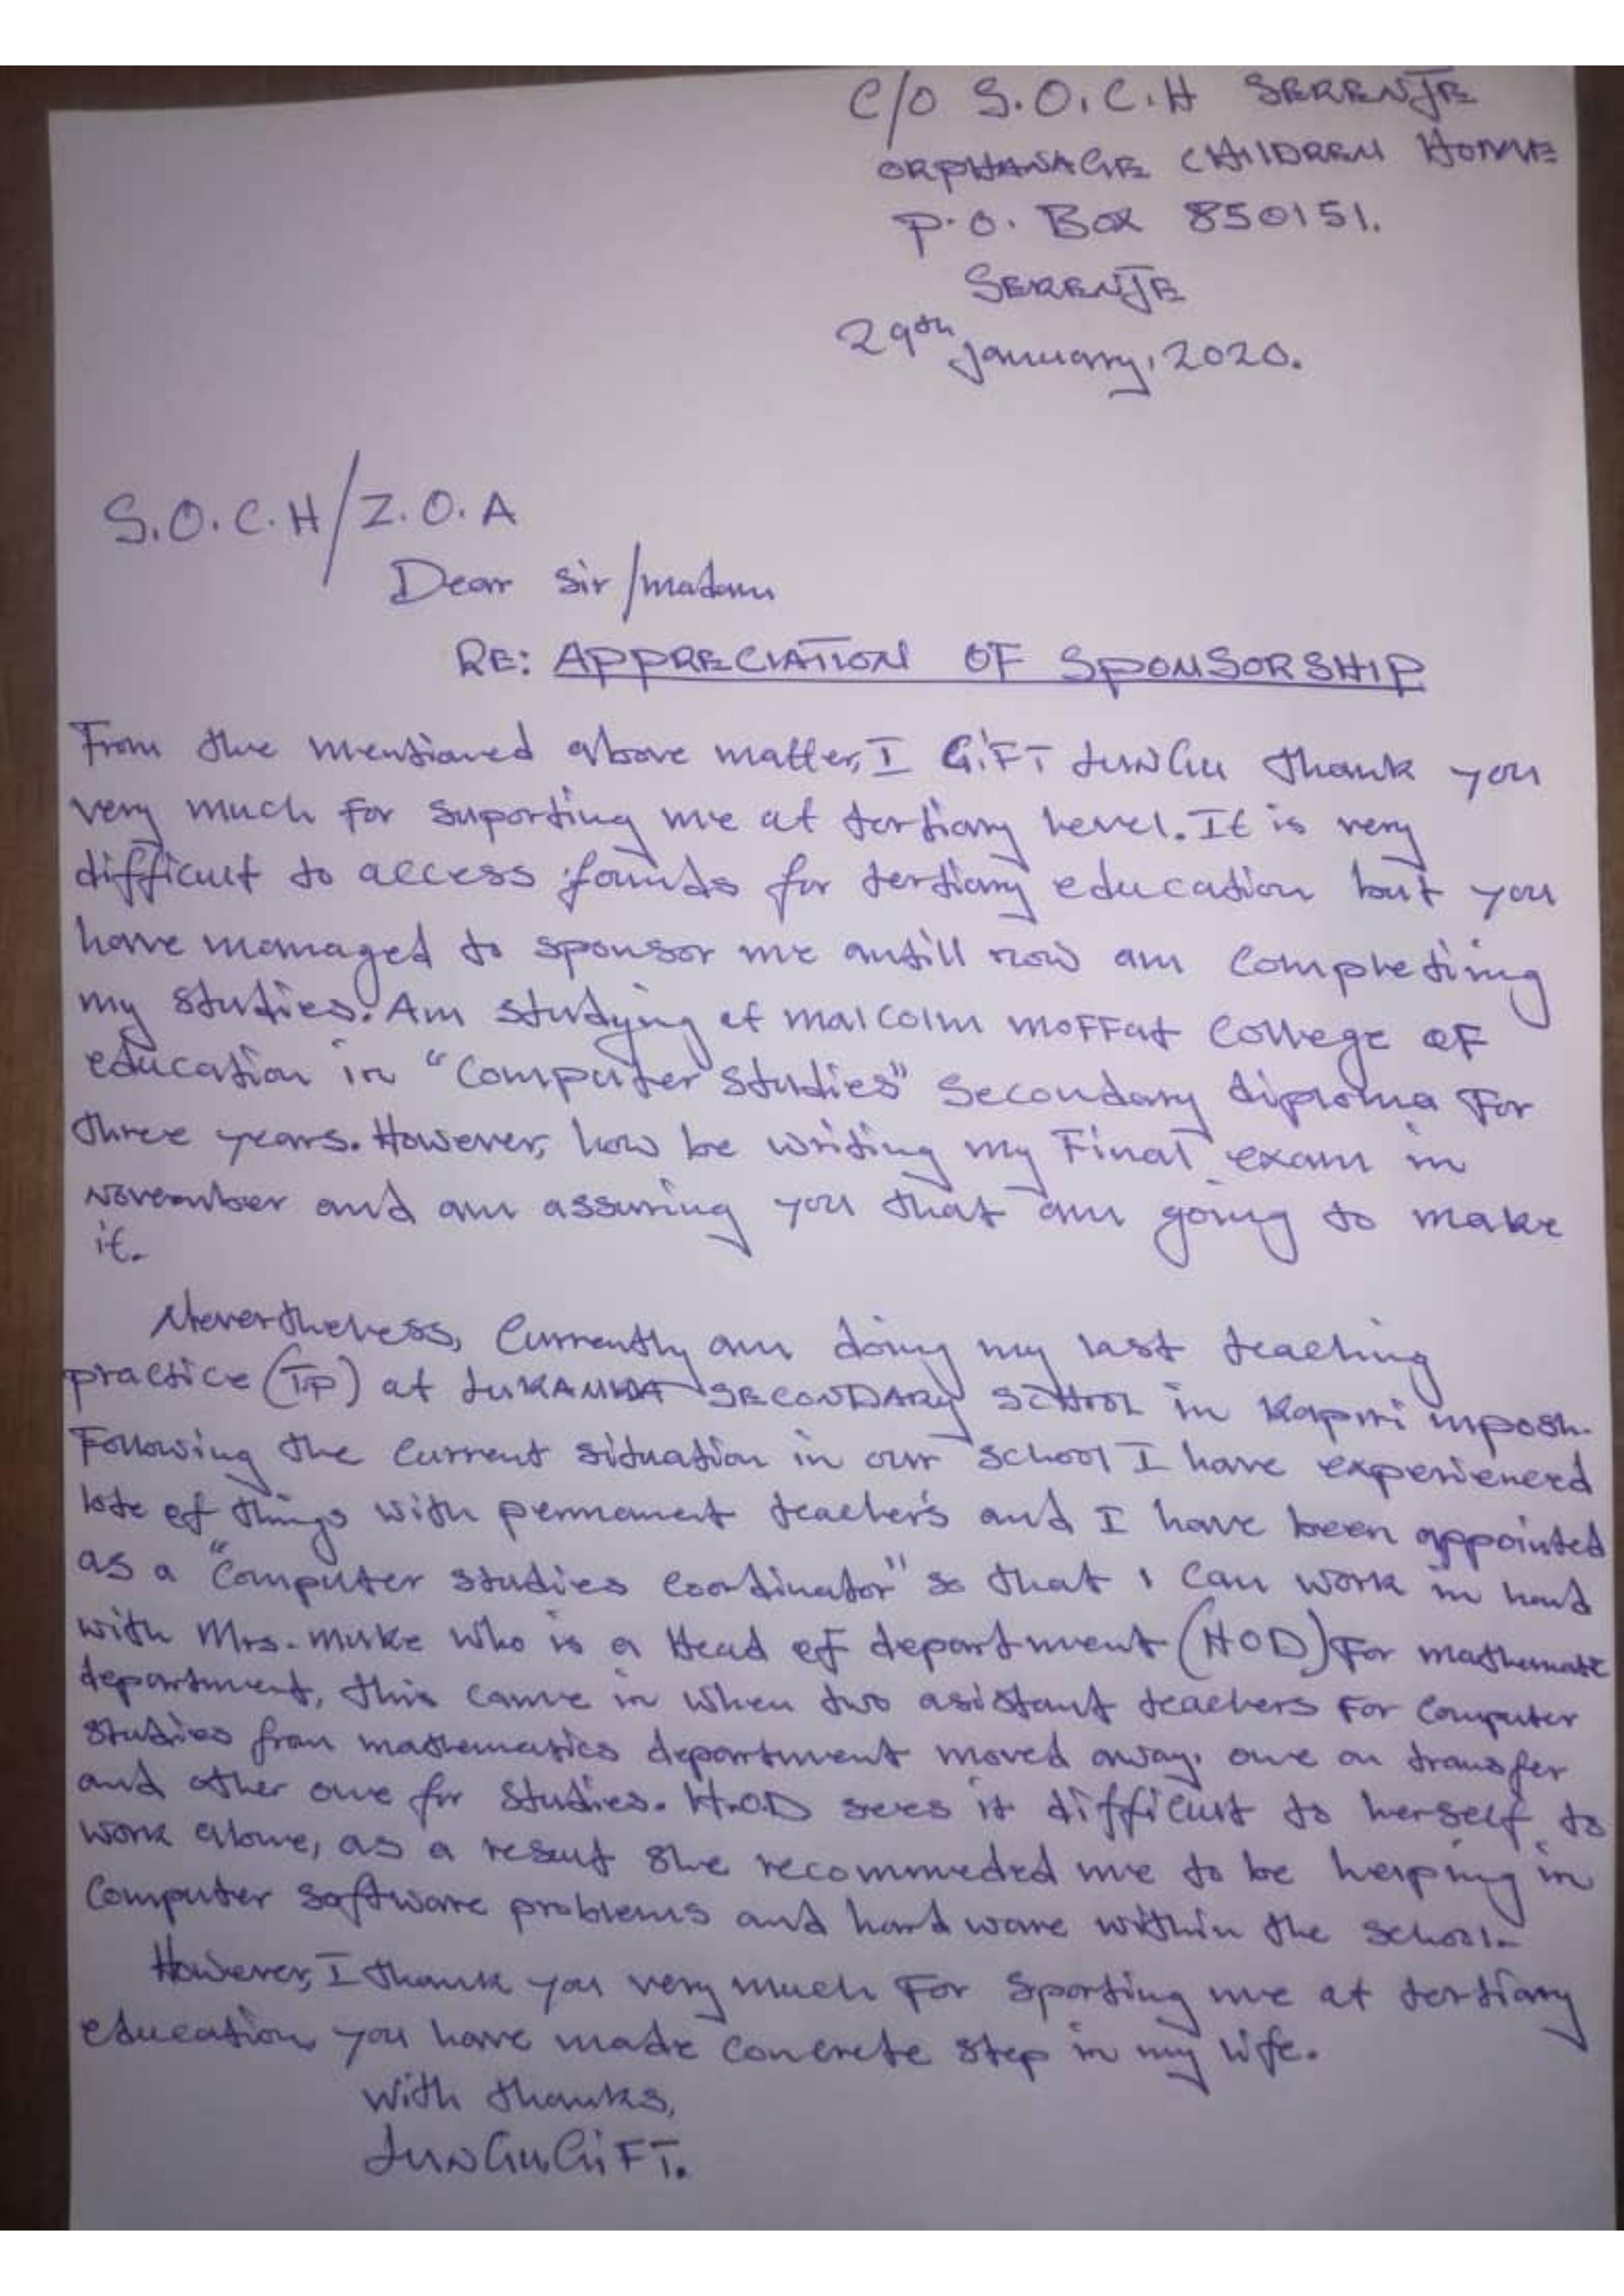 C/O S.O.C.H SERENJE
ORPHANAGE CHILDREN HOME
P.O. Box 850151.
SERENJE
29th January, 2020.
S.O.C.H/Z.O.A
Dear Sir/madam
RE: APPRECIATION OF SPONSORSHIP
From the mentioned above matter, I GIFT LUNGU thank you
very much for suporting me at tertiary level. It is very
difficult to access founds for tertiary education but you
have managed to sponsor me antill now am completing
my studies. Am studying at malcolm moffat College of
education in "Computer Studies" Secondary diploma for
three years. However, how be writing my Final exam in
November and am assuring you that am going to make
it.
Nevertheless, Currently am doing my last teaching
practice (T.P) at SECONDARY SCHOOL in Kapiri mposh.
Following the current situation in our school I have experienced
lots of things with permanent teachers and I have been appointed
as a "Computer studies coordinator" so that I can work in hand
with Mrs. muke who is a Head of department (HOD) for mathematic
department, this came in when two asistant teachers for Computer
studies from mathematics department moved away. one on transfer
and other one for studies. H.O.D sees it difficult to herself to
work alone, as a result she recommeded me to be helping in
Computer software problems and hard ware within the school.
However, I thank you very much For sporting me at tertiary
education you have made concrete step in my life.
With thanks,
LUNGU GIFT.